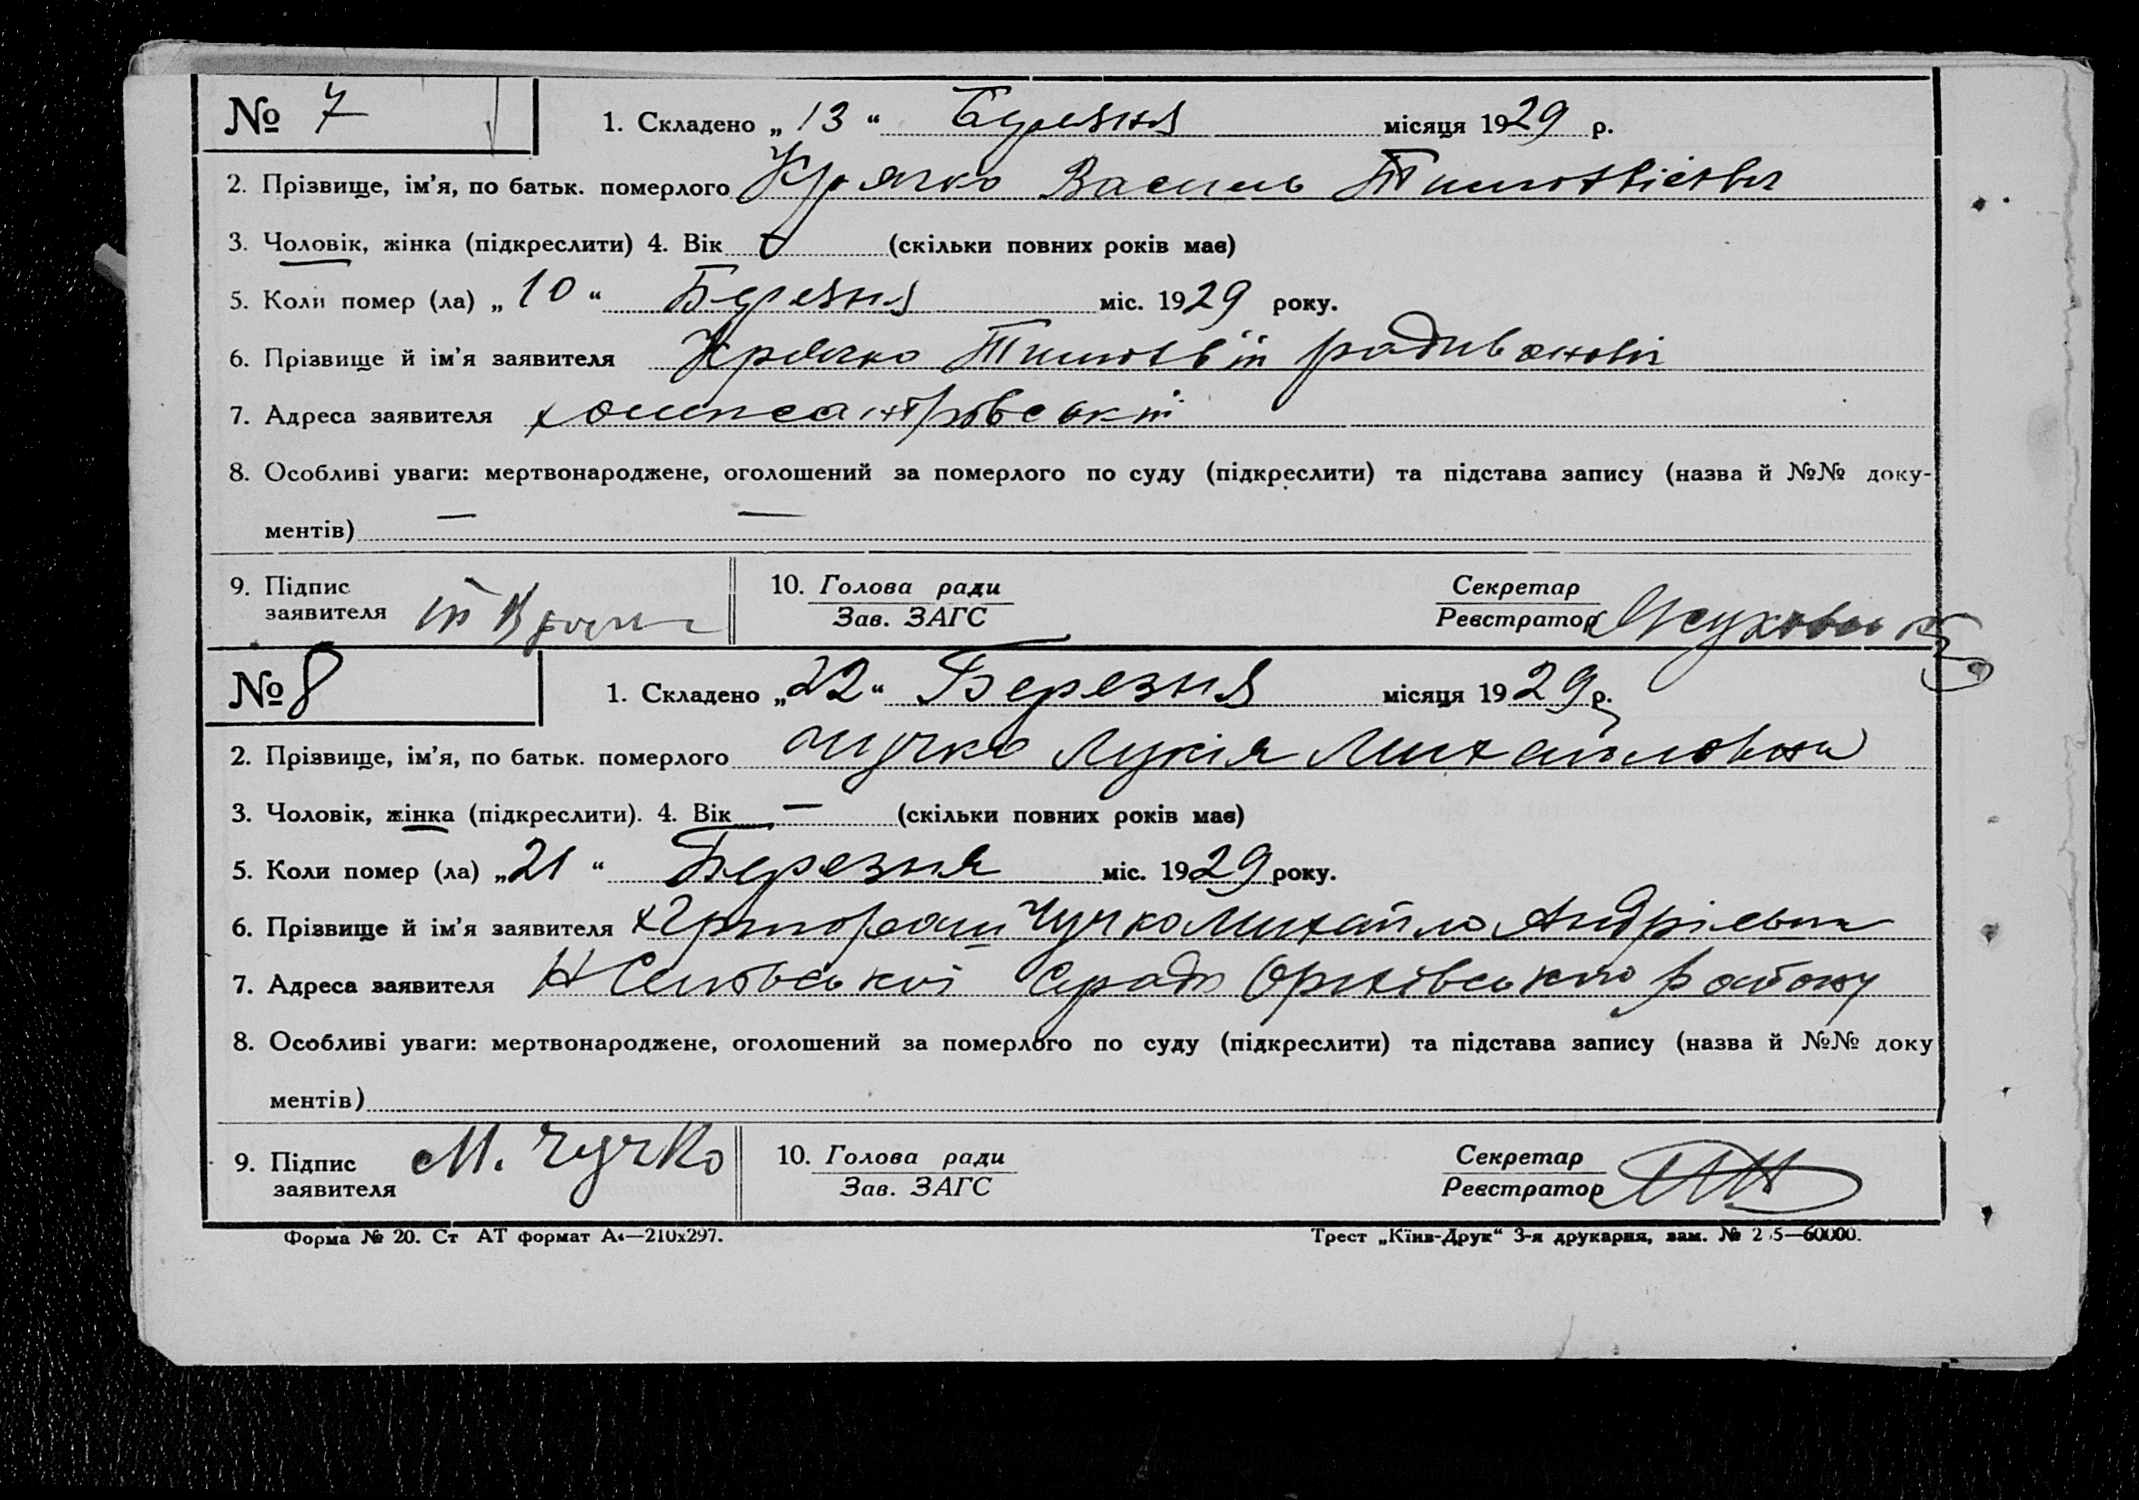 № 7 1. Складено „ 13 “ Березня місяця 1929 р.
2. Прізвище, ім’я, по батьк. померлого Крячко Василь Тимотвієвич
3. Чоловік, жінка (підкреслити) 4. Вік 0 (скільки повних років має)
5. Коли помер (ла) „ 10 “ Березня міс. 1929 року.
6. Прізвище й ім’я заявителя Крячко Тимотвій
7. Адреса заявителя
8. Особливі уваги: мертвонароджене, оголошений за померлого по суду (підкреслити) та підстава запису (назва й №№ доку-
ментів) — —
9. Підпис 10. Голова ради Секретар
заявителя Зав. ЗАГС Реєстратор
№ 8 1. Складено „ 22 “ Березня місяця 1929 р.
2. Прізвище, ім’я, по батьк. померлого Чучко Лукія Михайловна
3. Чоловік, жінка (підкреслити). 4. Вік — (скільки повних років має)
5. Коли помер (ла) „ 21 “ Березня міс. 1929 року.
6. Прізвище й ім’я заявителя Чучко Михайло Андрієвич
7. Адреса заявителя Оржівського району
8. Особливі уваги: мертвонароджене, оголошений за померлого по суду (підкреслити) та підстава запису (назва й №№ доку
ментів)
9. Підпис М. Чучко 10. Голова ради Секретар
заявителя Зав. ЗАГС Реєстратор
Форма № 20. Ст АТ формат А4—210х297. Трест „Київ-Друк“ 3-я друкарня, зам. №